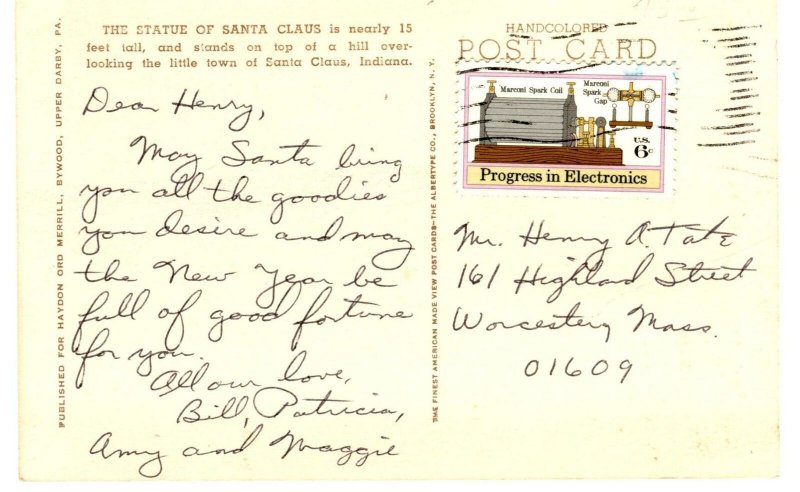 THE STATUE OF SANTA CLAUS is nearly 15
feet tall, and stands on top of a hill over-
looking the little town of Santa Claus, Indiana.
Dear Henry,
May Santa bring
you all the goodies
you desire and may
the New Year be
full of good fortune
for you.
All our love,
Bill, Patricia,
Amy and Maggie
PUBLISHED FOR HAYDON ORD MERRILL, BYWOOD, UPPER DARBY, PA.
THE FINEST AMERICAN MADE VIEW POST CARDS—THE ALBERTYPE CO., BROOKLYN, N. Y.
HANDCOLORED
POST CARD
Marconi Spark Coil
Marconi
Spark
Gap
U.S.
6c
Progress in Electronics
Mr. Henry A. Tate
161 Highland Street
Worcester, Mass.
01609